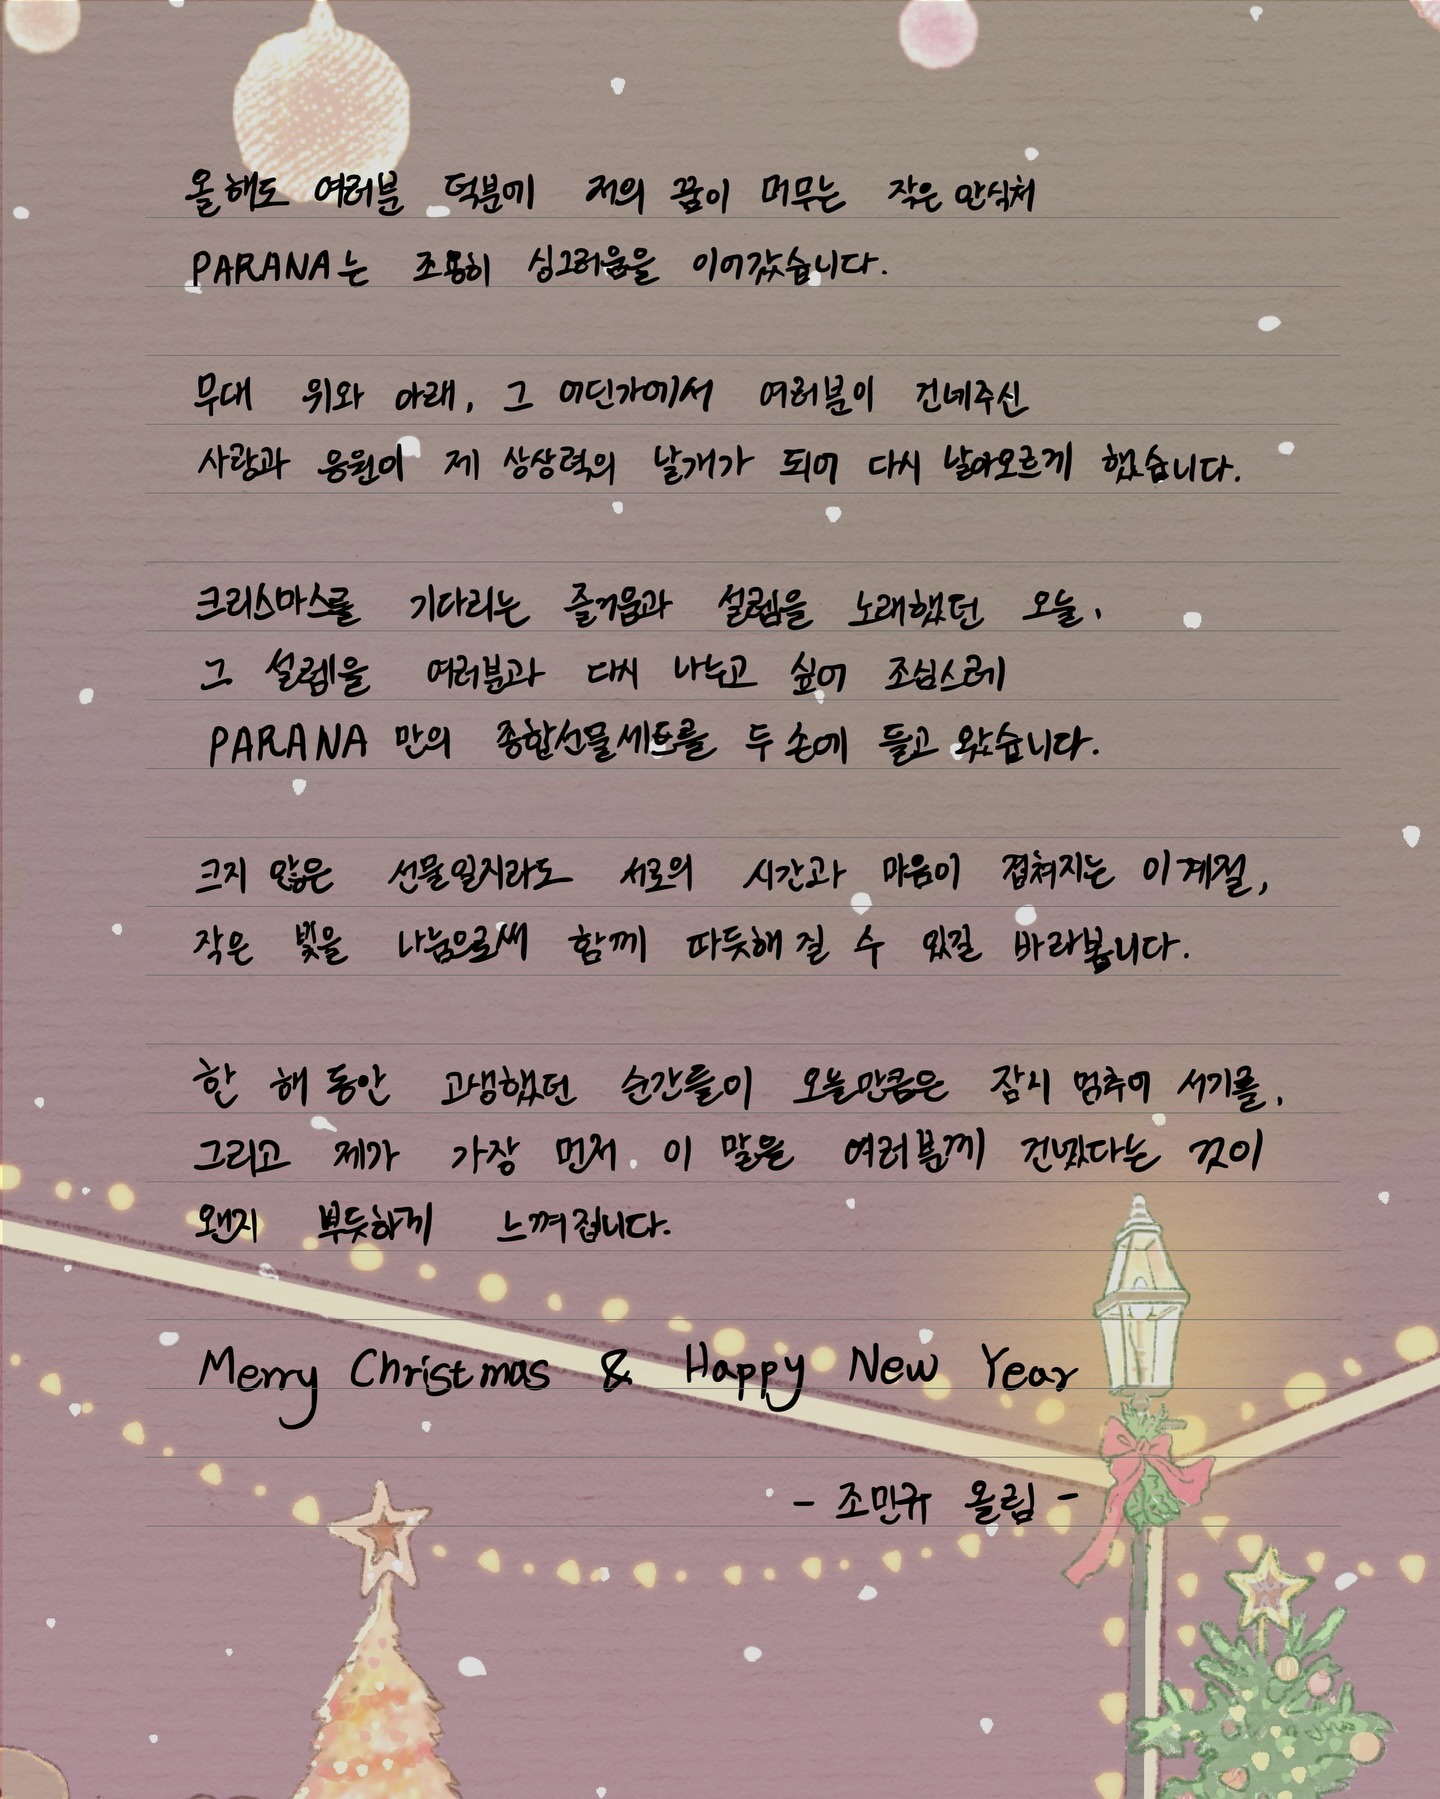 올해도 여러분 덕분에 저의 꿈이 머무는 작은 안식처
PARANA는 조용히 싱그러움을 이어갔습니다.
무대 위와 아래, 그 어딘가에서 여러분이 건네주신
사랑과 응원이 제 상상력의 날개가 되어 다시 날아오르게 했습니다.
크리스마스를 기다리는 즐거움과 설렘을 노래했던 오늘,
그 설렘을 여러분과 다시 나누고 싶어 조심스레
PARANA만의 종합선물세트를 두 손에 들고 왔습니다.
크지 않은 선물일지라도 서로의 시간과 마음이 겹쳐지는 이 계절,
작은 빛을 나눔으로써 함께 따듯해질 수 있길 바라봅니다.
한 해 동안 고생했던 순간들이 오늘만큼은 잠시 멈추어 서기를,
그리고 제가 가장 먼저 이 말을 여러분께 건넸다는 것이
왠지 뿌듯하게 느껴집니다.
Merry Christmas & Happy New Year
- 조민규 올림 -